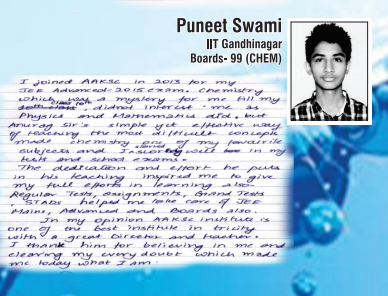 Puneet Swami
IIT Gandhinagar
Boards- 99 (CHEM)
I joined AAKSC in 2013 for my
JEE Advanced-2015 exam. Chemistry
which was a mystery for me till my
10th class, didnot interest me as
Physics and Mathematics did, but
Anurag Sir's simple yet effective way
of teaching the most difficult concepts
made chemistry one of my favourite
subjects and I started scoring well in my
tests and school exams.
The dedication and efforts he puts
in his teaching inspired me to give
my full efforts in learning also.
Regular Tests, assignments, Grand Tests
STADs helped me take care of JEE
Mains, Advanced and Boards also.
In my opinion AAKSC institute is
one of the best institute in tricity
with a great Director and teacher.
I thank him for believing in me and
clearing my every doubt which made
me today what I am.